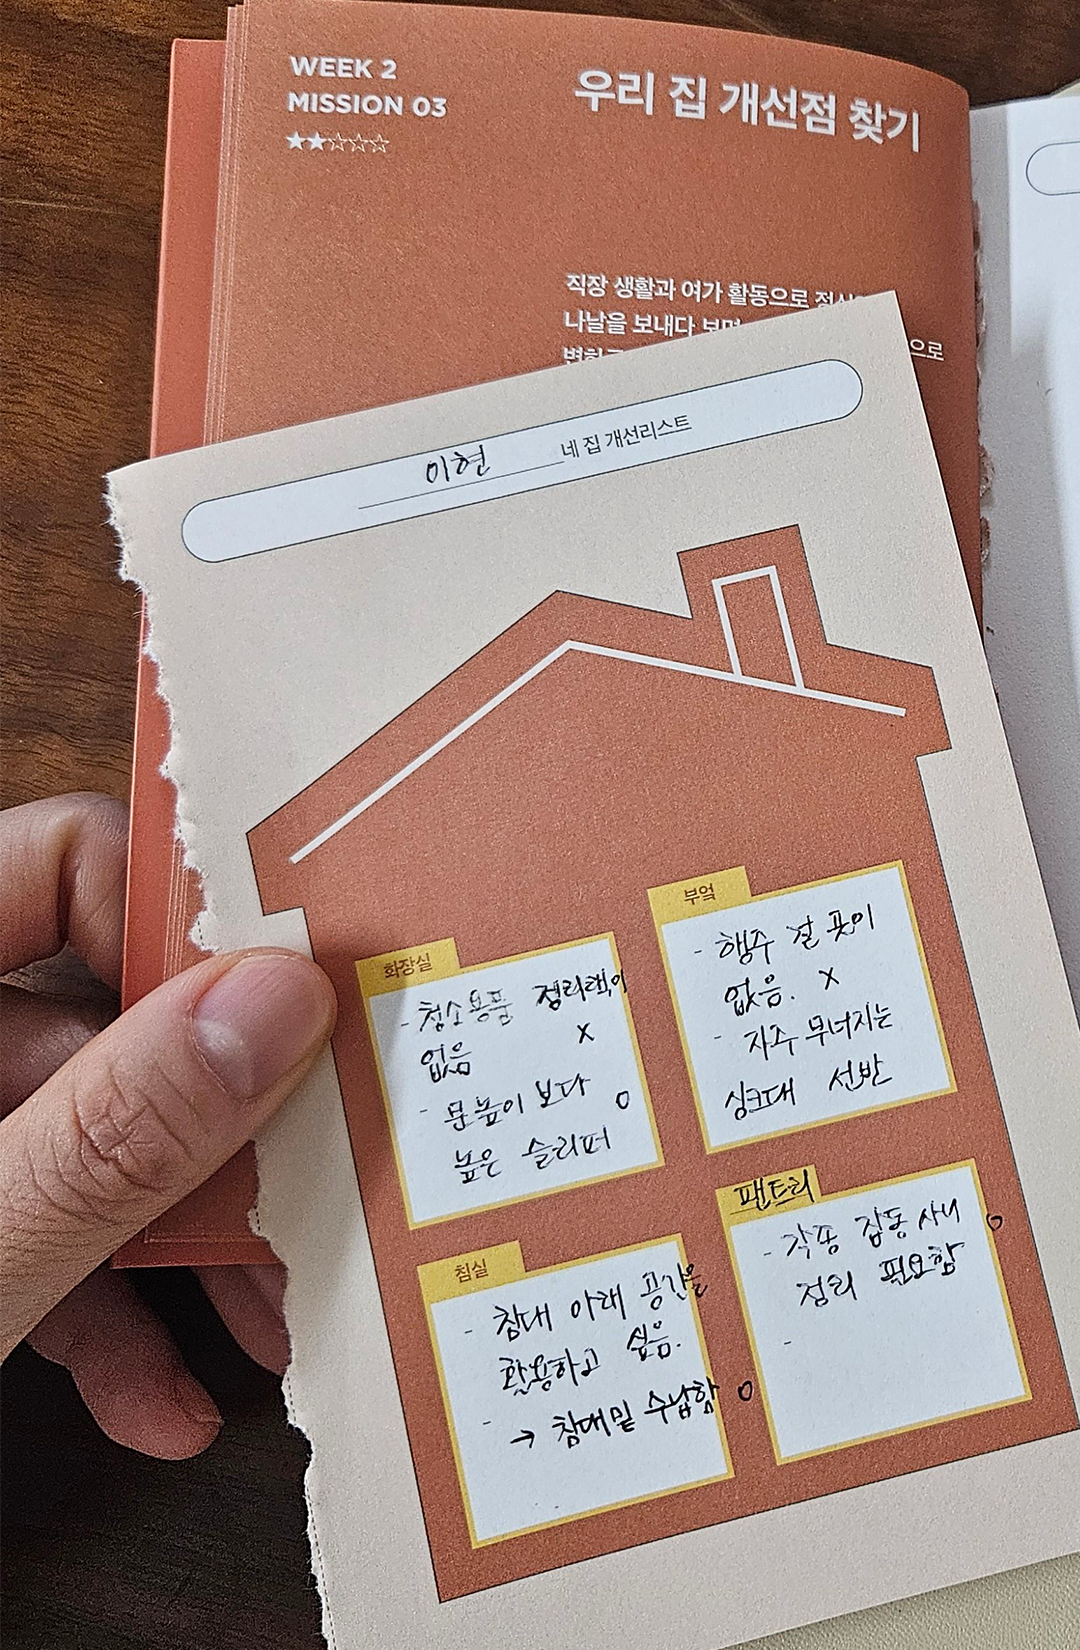 WEEK 2
MISSION 03
우리 집 개선점 찾기
직장 생활과 여가 활동으로
나날을 보내다 보면
으로
이현 네 집 개선리스트
화장실
- 청소용품 정리랙이
없음 x
- 문높이 보다 o
높은 슬리퍼
부엌
- 행주 걸 곳이
없음. x
- 자주 무너지는
싱크대 선반
침실
- 침대 아래 공간을
활용하고 싶음.
-
→ 침대밑 수납함 o
팬트리
- 각종 잡동사니 o
정리 필요함
-